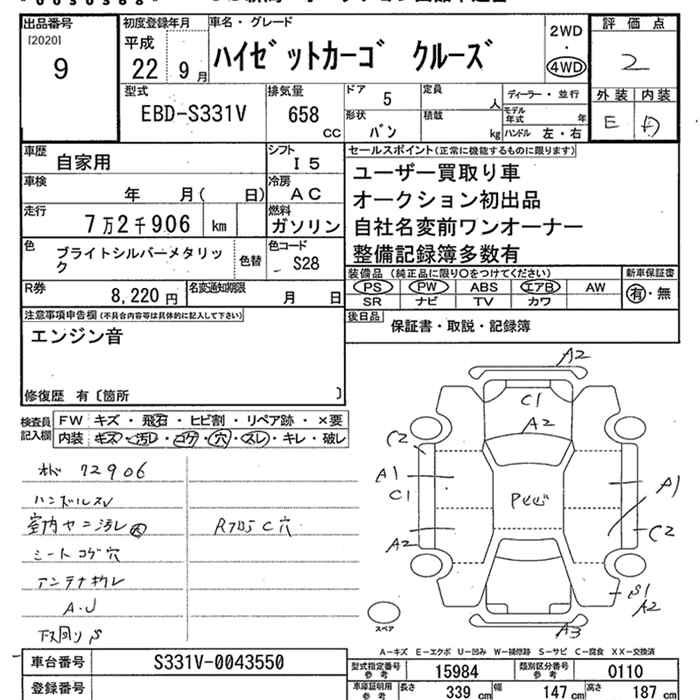 出品番号
[2020]
9
初度登録年月
平成
22年 9月
車名・グレード
ハイゼットカーゴ クルーズ
2WD
・
4WD
評価点
2
外装 内装
E D
型式
EBD-S331V
排気量
658
CC
ドア
5
形状
バン
定員
人
積載
kg
ディーラー・並行
モデル年式 年
ハンドル 左・右
車歴
自家用
シフト
I5
車検
年 月( 日)
冷房
AC
走行
7万2千906 km
燃料
ガソリン
色
ブライトシルバーメタリック
色替
色コード
S28
R券
8,220 円
名変通知期限
月 日
セールスポイント(正常に機能するものに限ります)
ユーザー買取り車
オークション初出品
自社名変前ワンオーナー
整備記録簿多数有
装備品(純正品に限り○をつけてください)
PS PW ABS エアB AW
SR ナビ TV カワ
新車保証書
有・無
後日品
保証書・取説・記録簿
注意事項申告欄(不具合内容等は具体的に記入して下さい)
エンジン音
修復歴 有〔箇所 〕
検査員記入欄
FW キズ・飛石・ヒビ割・リペア跡・×要
内装 キズ・汚レ・コゲ・穴・スレ・キレ・破レ
72906
ハンドルスレ
室内ヤニ汚レ大
シートコゲ穴
アンテナ切レ
A.U
下回りS
C穴
A2
C1
A2
C2
A1
C1
A2
A1
C2
S1
A2
A3
スペア
A-キズ E-エクボ U-凹み W-補修跡 S-サビ C-腐食 XX-交換済
車台番号
S331V-0043550
登録番号
型式指定番号
参考
15984
類別区分番号
参考
0110
車庫証明用
参考
長さ 339 cm 幅 147 cm 高さ 187 cm